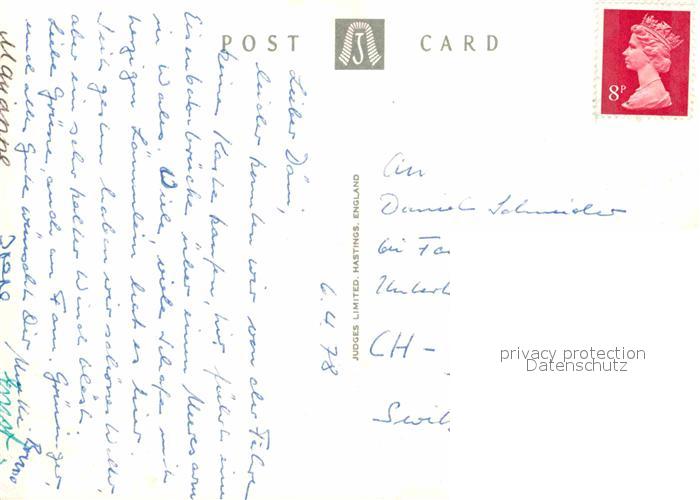 POST CARD
8P
JUDGES LIMITED, HASTINGS, ENGLAND
6.4.78
Lieber Däni,
leider konnten wir von der Fähre
keine Karte kaufen, hier führt eine
Eisenbahnbrücke über einen Meeresarm
in Wales. Viele, viele Schafe mit
herzigen Lämmlein hat es hier.
Seit gestern haben wir schönes Wetter,
aber ein sehr kalter Wind bläst.
Liebe Grüsse, auch an Fam. Grüninger,
und alles Gute wünscht Dir Mutti Bruno
Marianne
An
Daniel Schneider
bei Fa
CH -
privacy protection
Datenschutz